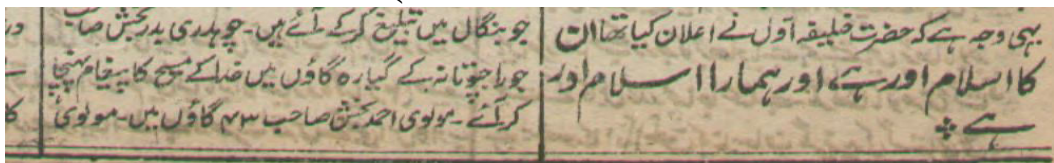 یہی وجہ ہے کہ حضرت خلیفہ اول نے اعلان کیا تھا ان
کا اسلام اور ہے، اور ہمارا اسلام اور
ہے ؞
جو بنگال میں تبلیغ کرکے آئے ہیں۔ چوہدری بدر بخش صا
جو راجپوتانہ کے گیارہ گاؤں میں خدا کے مسیح کا پیغام پہنچا
کر آئے۔ مولوی احمد بخش صاحب ۴۳ گاؤں میں۔ مولوی